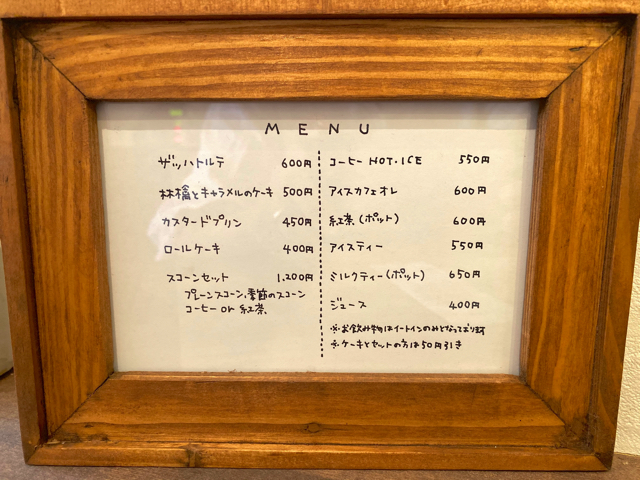 MENU
ザッハトルテ 600円
林檎とキャラメルのケーキ 500円
カスタードプリン 450円
ロールケーキ 400円
スコーンセット 1,200円
プレーンスコーン、季節のスコーン
コーヒー or 紅茶
コーヒー HOT・ICE 550円
アイスカフェオレ 600円
紅茶(ポット) 600円
アイスティー 550円
ミルクティー(ポット) 650円
ジュース 400円
※お飲み物はイートインのみとなっております
※ケーキとセットの方は50円引き